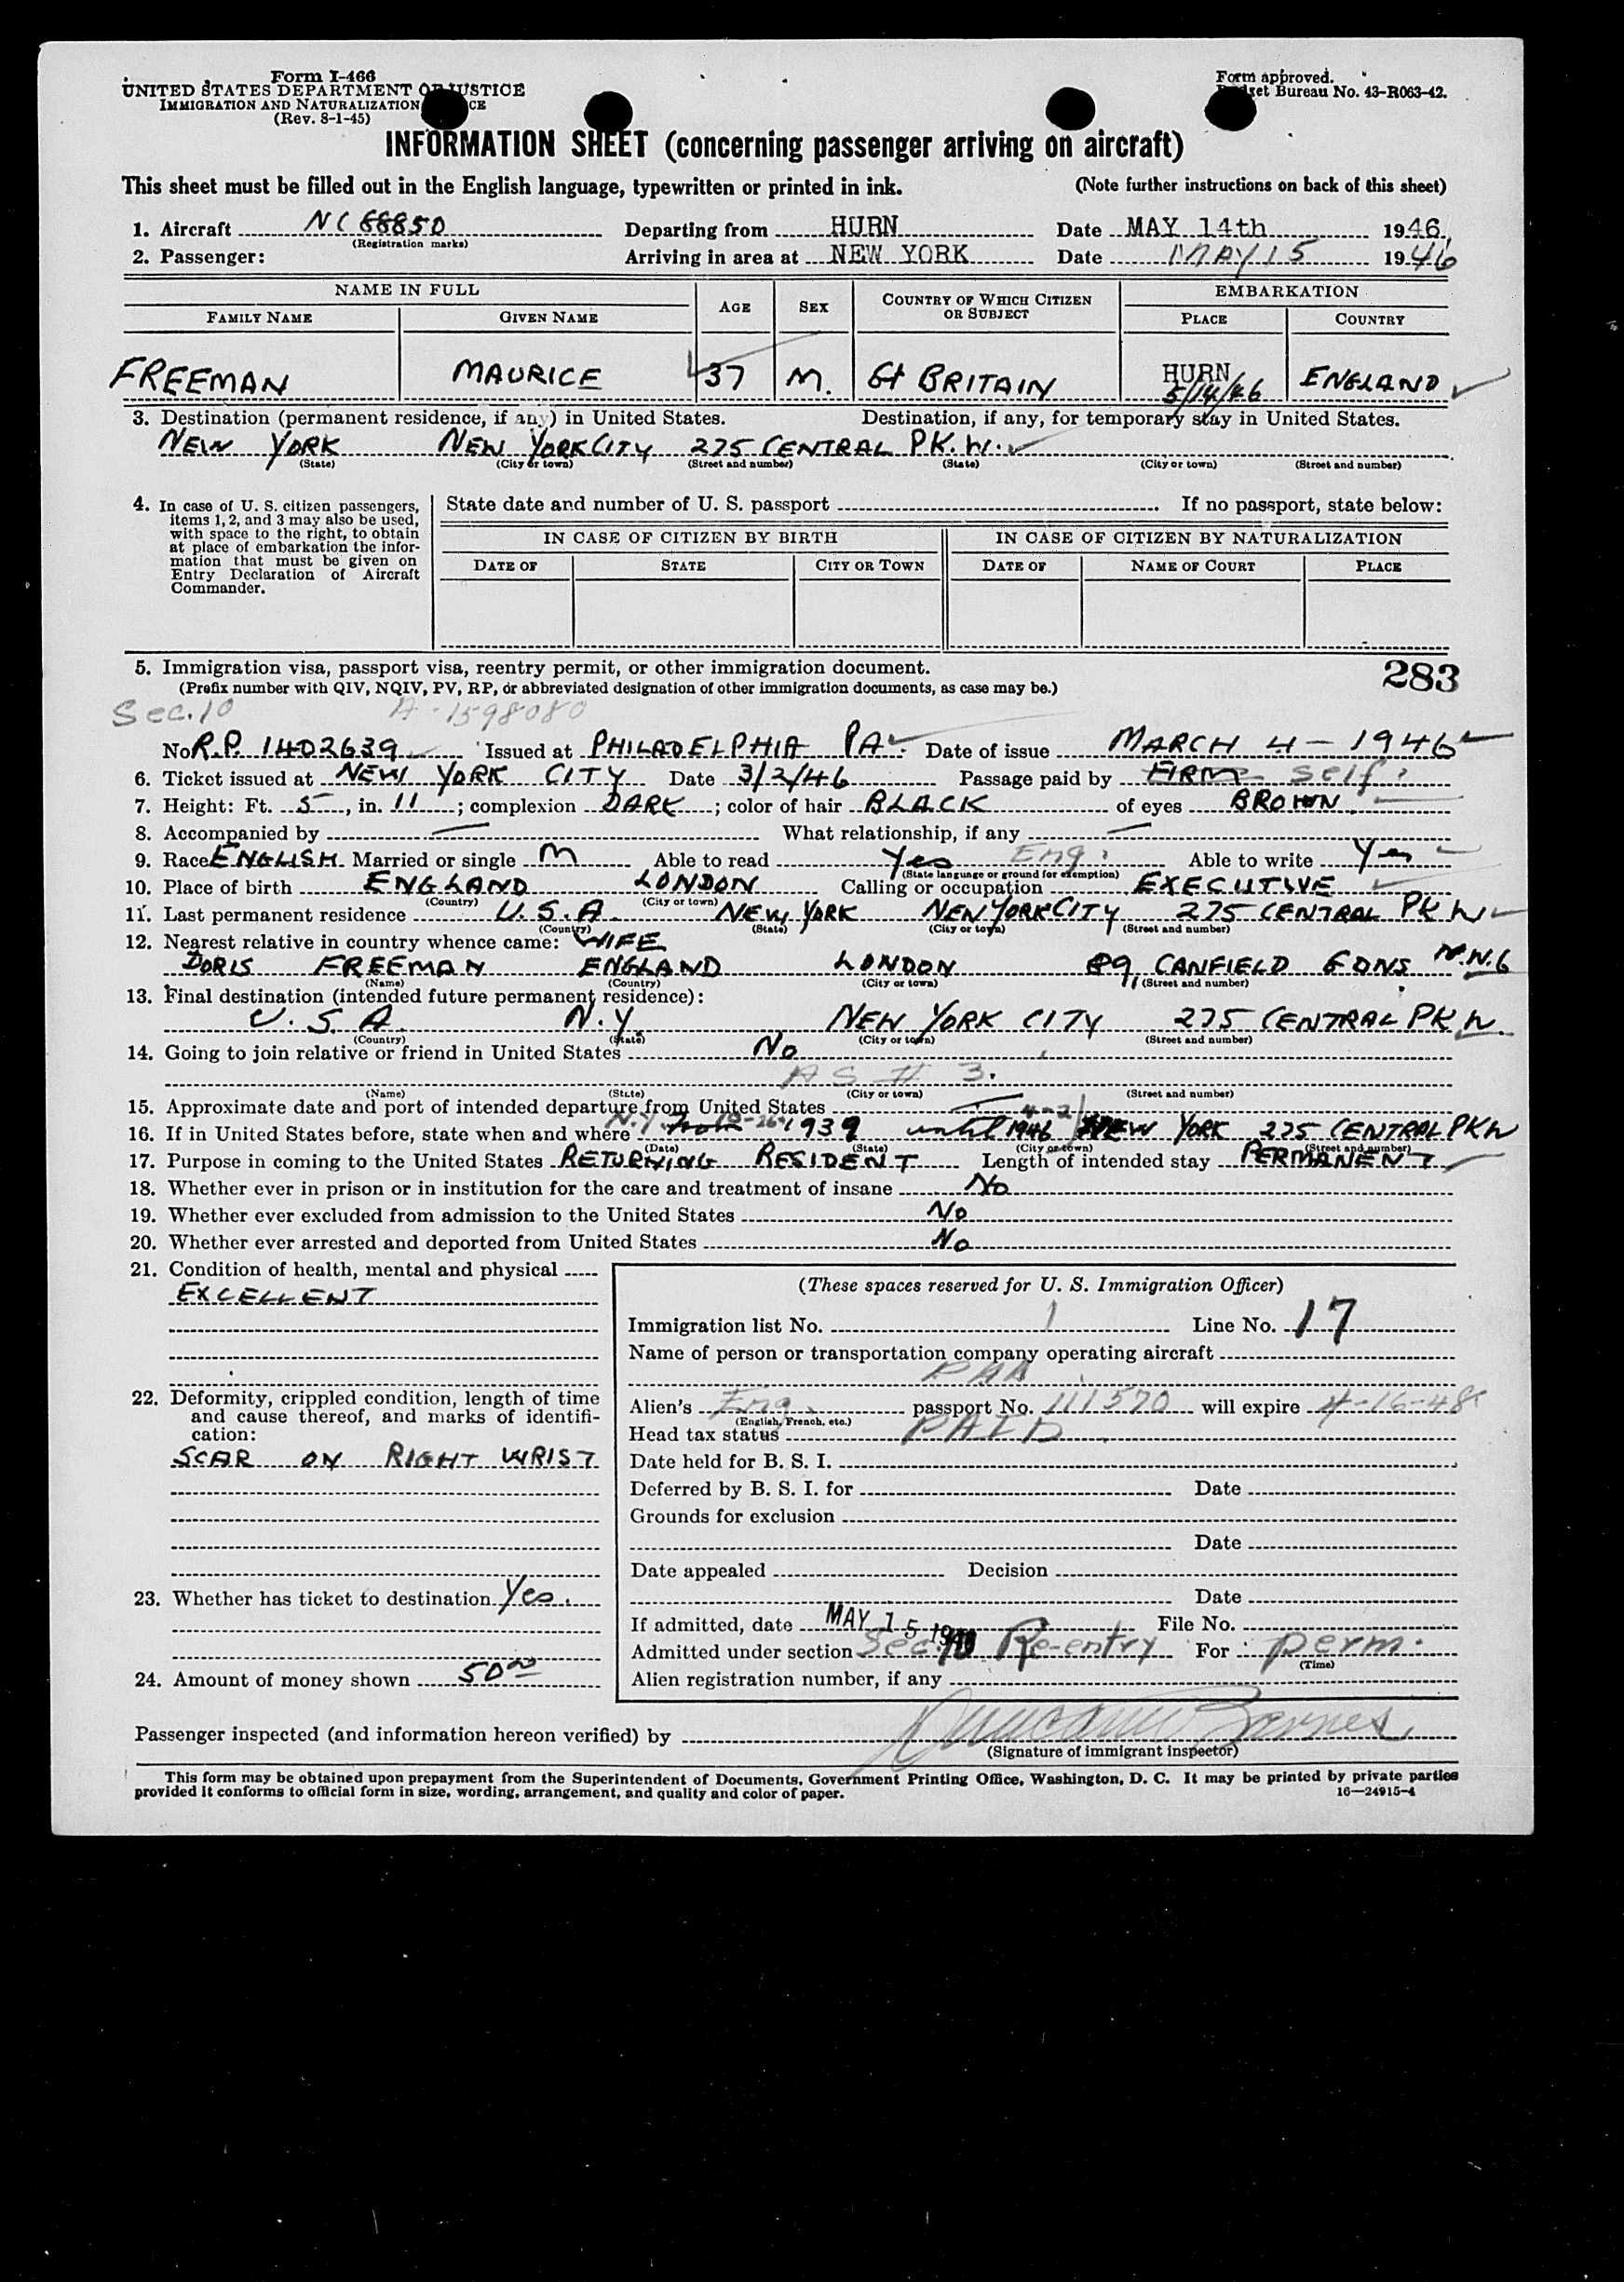 Form I-466
UNITED STATES DEPARTMENT OF JUSTICE
IMMIGRATION AND NATURALIZATION
(Rev. 8-1-45)
Form approved.
Bureau No. 43-R063-42.
INFORMATION SHEET (concerning passenger arriving on aircraft)
This sheet must be filled out in the English language, typewritten or printed in ink. (Note further instructions on back of this sheet)
1. Aircraft NC 88850 Departing from HURN Date MAY 14th 1946
(Registration marks)
2. Passenger: Arriving in area at NEW YORK Date MAY 15 1946
NAME IN FULL AGE SEX COUNTRY OF WHICH CITIZEN OR SUBJECT EMBARKATION
FAMILY NAME GIVEN NAME PLACE COUNTRY
FREEMAN MAURICE 37 M. Gt BRITAIN HURN 5/14/46 ENGLAND
3. Destination (permanent residence, if any) in United States. Destination, if any, for temporary stay in United States.
NEW YORK NEW YORK CITY 275 CENTRAL PK. W.
(State) (City or town) (Street and number) (State) (City or town) (Street and number)
4. In case of U. S. citizen passengers, items 1, 2, and 3 may also be used, with space to the right, to obtain at place of embarkation the information that must be given on Entry Declaration of Aircraft Commander.
State date and number of U. S. passport If no passport, state below:
IN CASE OF CITIZEN BY BIRTH IN CASE OF CITIZEN BY NATURALIZATION
DATE OF STATE CITY OR TOWN DATE OF NAME OF COURT PLACE
5. Immigration visa, passport visa, reentry permit, or other immigration document. 283
(Prefix number with QIV, NQIV, PV, RP, or abbreviated designation of other immigration documents, as case may be.)
Sec. 10 A-1598080
No R.P. 1402639 Issued at PHILADELPHIA PA. Date of issue MARCH 4 - 1946
6. Ticket issued at NEW YORK CITY Date 3/2/46 Passage paid by FIRM Self
7. Height: Ft. 5, in. 11; complexion DARK; color of hair BLACK of eyes BROWN
8. Accompanied by — What relationship, if any —
9. Race ENGLISH Married or single M Able to read Yes Eng. Able to write Yes
(State language or ground for exemption)
10. Place of birth ENGLAND LONDON Calling or occupation EXECUTIVE
(Country) (City or town)
11. Last permanent residence U.S.A. NEW YORK NEW YORK CITY 275 CENTRAL PK W
(Country) (State) (City or town) (Street and number)
12. Nearest relative in country whence came: WIFE
DORIS FREEMAN ENGLAND LONDON 89, CANFIELD GDNS N.W.6
(Name) (Country) (City or town) (Street and number)
13. Final destination (intended future permanent residence):
U.S.A. N.Y. NEW YORK CITY 275 CENTRAL PK W.
(Country) (State) (City or town) (Street and number)
14. Going to join relative or friend in United States No
AS # 3.
(Name) (State) (City or town) (Street and number)
15. Approximate date and port of intended departure from United States —
16. If in United States before, state when and where N.Y. from 10-26 1939 until 4-2 1946 NEW YORK 275 CENTRAL PK W
(Date) (State) (City or town) (Street and number)
17. Purpose in coming to the United States RETURNING RESIDENT Length of intended stay PERMANENT
18. Whether ever in prison or in institution for the care and treatment of insane No
19. Whether ever excluded from admission to the United States No
20. Whether ever arrested and deported from United States No
21. Condition of health, mental and physical
EXCELLENT
22. Deformity, crippled condition, length of time and cause thereof, and marks of identification:
SCAR ON RIGHT WRIST
23. Whether has ticket to destination Yes.
24. Amount of money shown 50 00
(These spaces reserved for U. S. Immigration Officer)
Immigration list No. 1 Line No. 17
Name of person or transportation company operating aircraft
PAA
Alien's Eng. passport No. 111570 will expire 4-16-48
(English, French, etc.)
Head tax status PAID
Date held for B. S. I.
Deferred by B. S. I. for Date
Grounds for exclusion
Date
Date appealed Decision
Date
If admitted, date MAY 15 1946 File No.
Admitted under section Sec. 10 Re-entry For perm.
(Time)
Alien registration number, if any
Passenger inspected (and information hereon verified) by Barnes
(Signature of immigrant inspector)
This form may be obtained upon prepayment from the Superintendent of Documents, Government Printing Office, Washington, D. C. It may be printed by private parties
provided it conforms to official form in size, wording, arrangement, and quality and color of paper. 16—24915-4